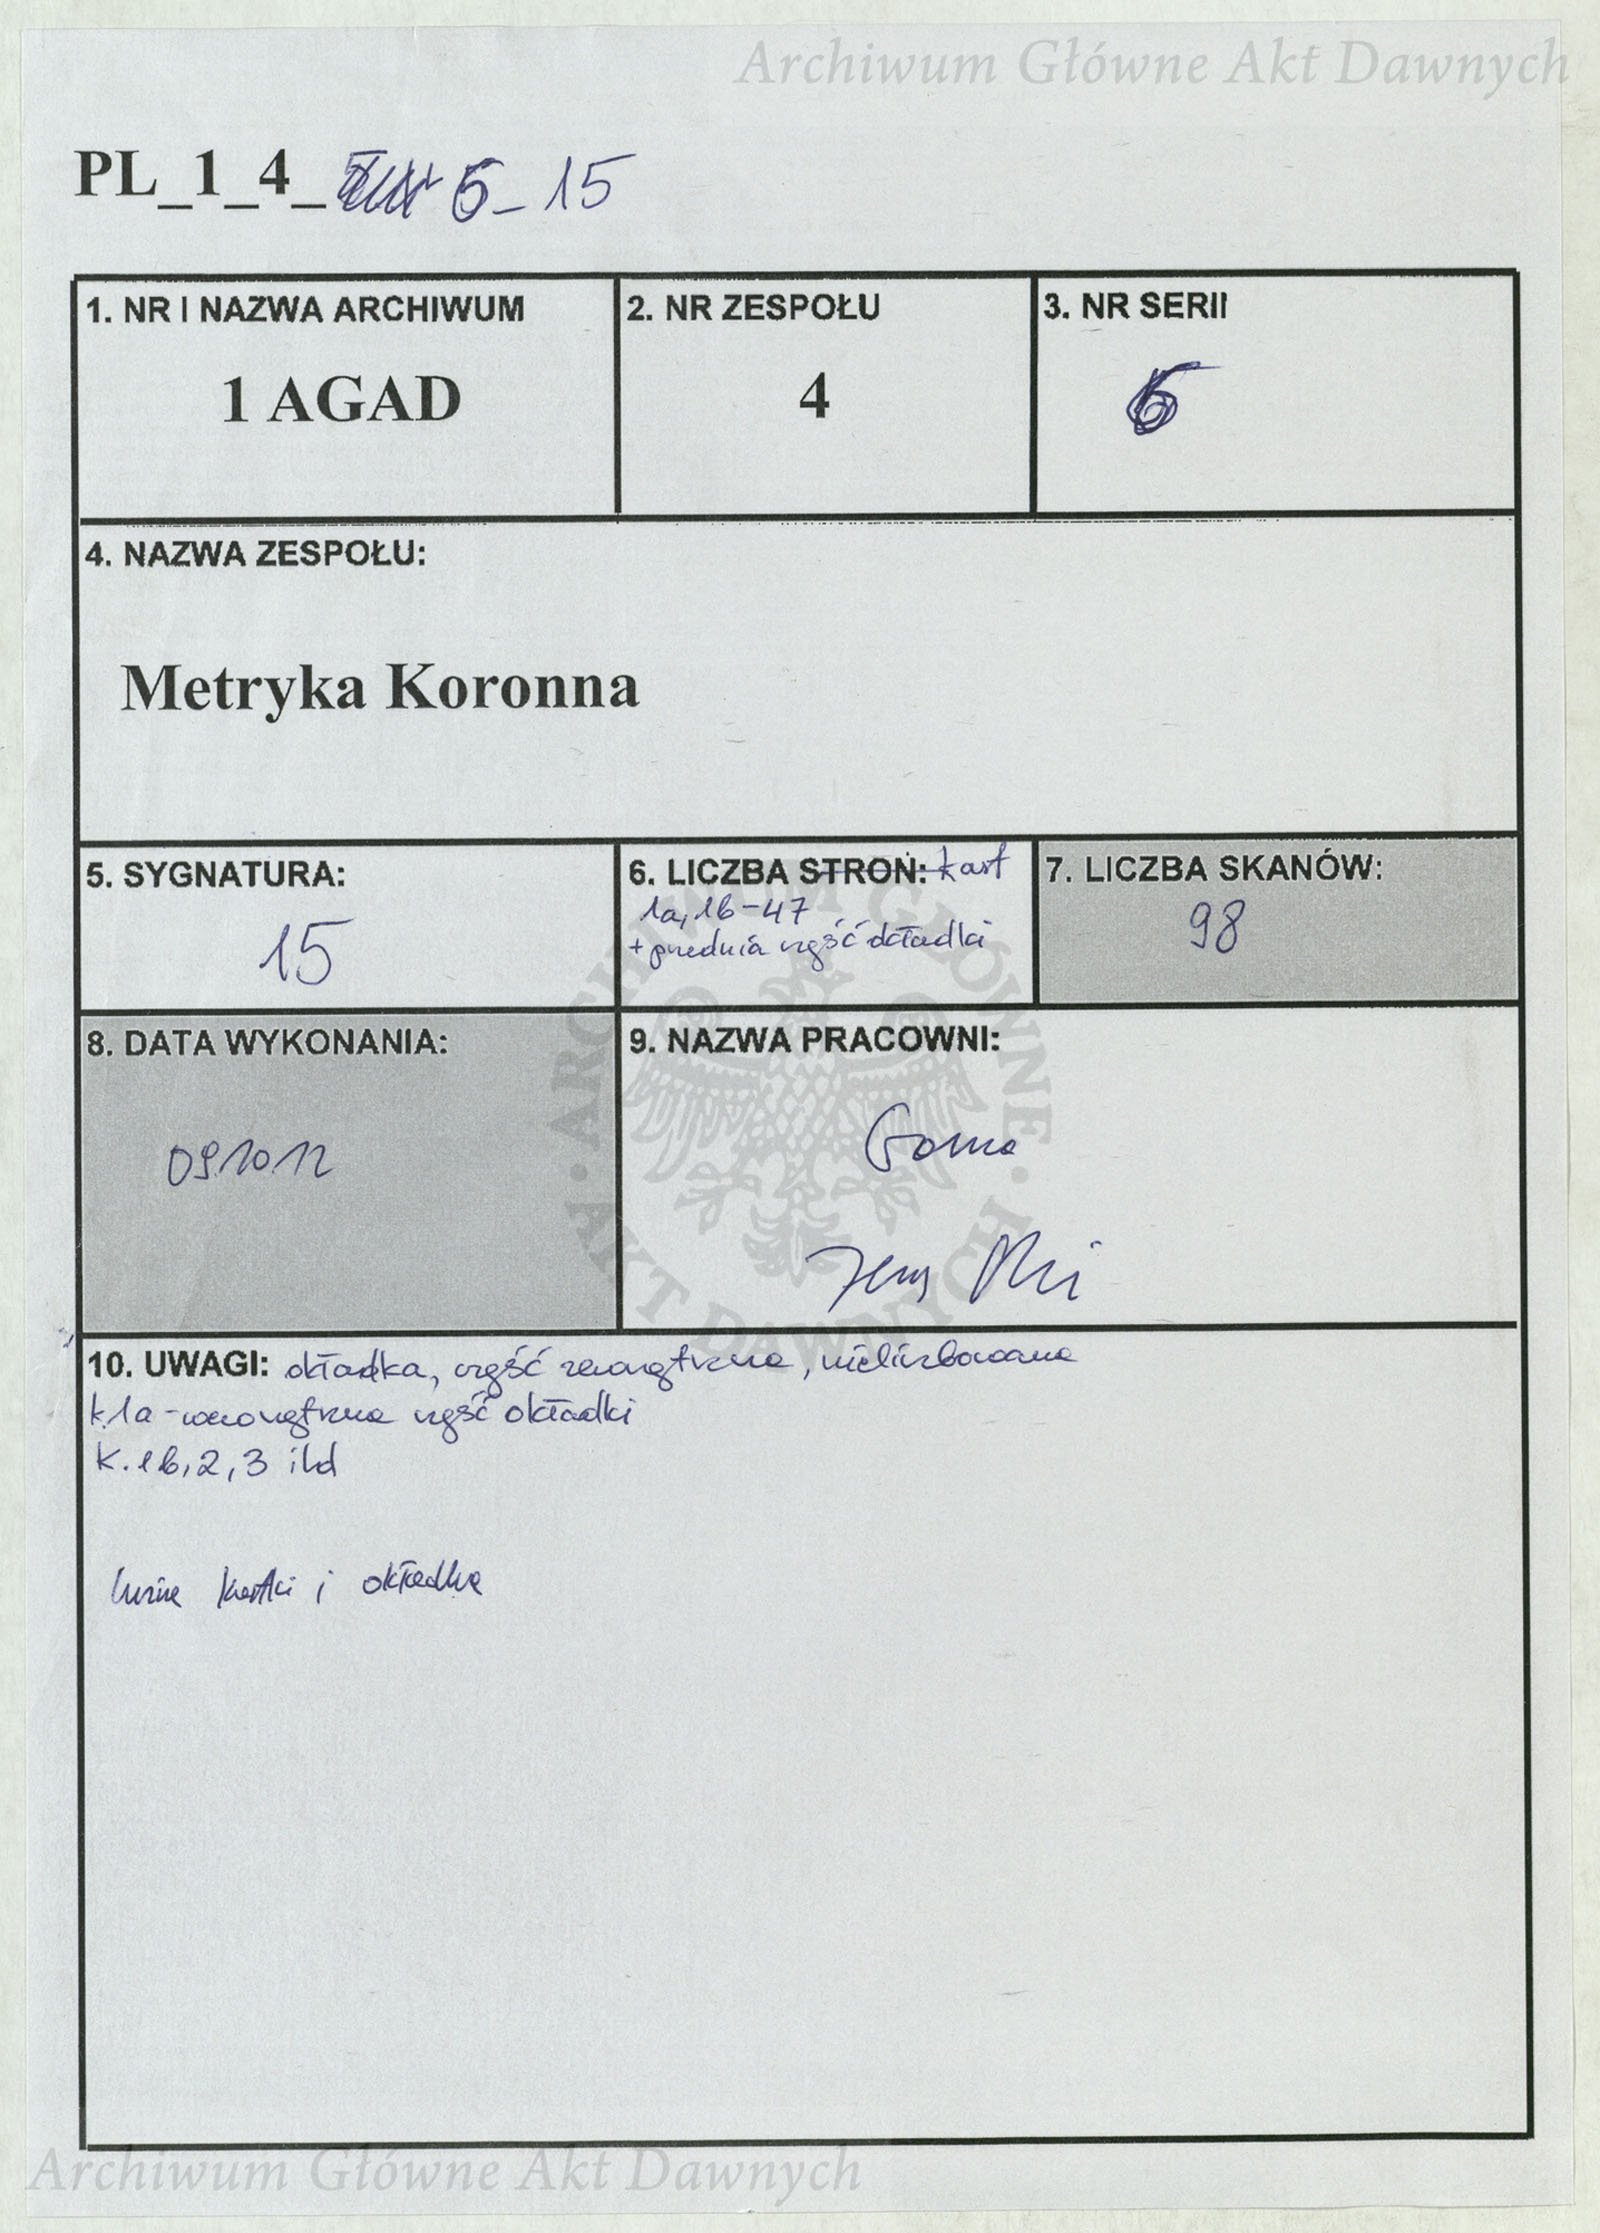 Archiwum Główne Akt Dawnych
PL_1_4_ 6_15
1. NR I NAZWA ARCHIWUM
1 AGAD
2. NR ZESPOŁU
4
3. NR SERII
6
4. NAZWA ZESPOŁU:
Metryka Koronna
5. SYGNATURA:
15
6. LICZBA STRON: kart
1a, 1b-47
+ przednia część okładki
7. LICZBA SKANÓW:
98
8. DATA WYKONANIA:
09.10.12
9. NAZWA PRACOWNI:
10. UWAGI: okładka, część zewnętrzna, nieliczbowana
k. 1a - wewnętrzna część okładki
k. 1b, 2, 3 itd
luźne kartki i okładka
ARCHIWUM GŁÓWNE · AKT DAWNYCH ·
Archiwum Główne Akt Dawnych